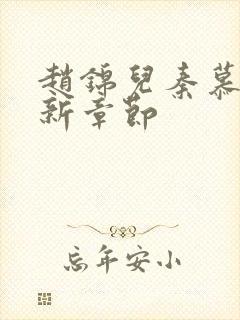 趙錦兒秦慕
新章節
忘年安小